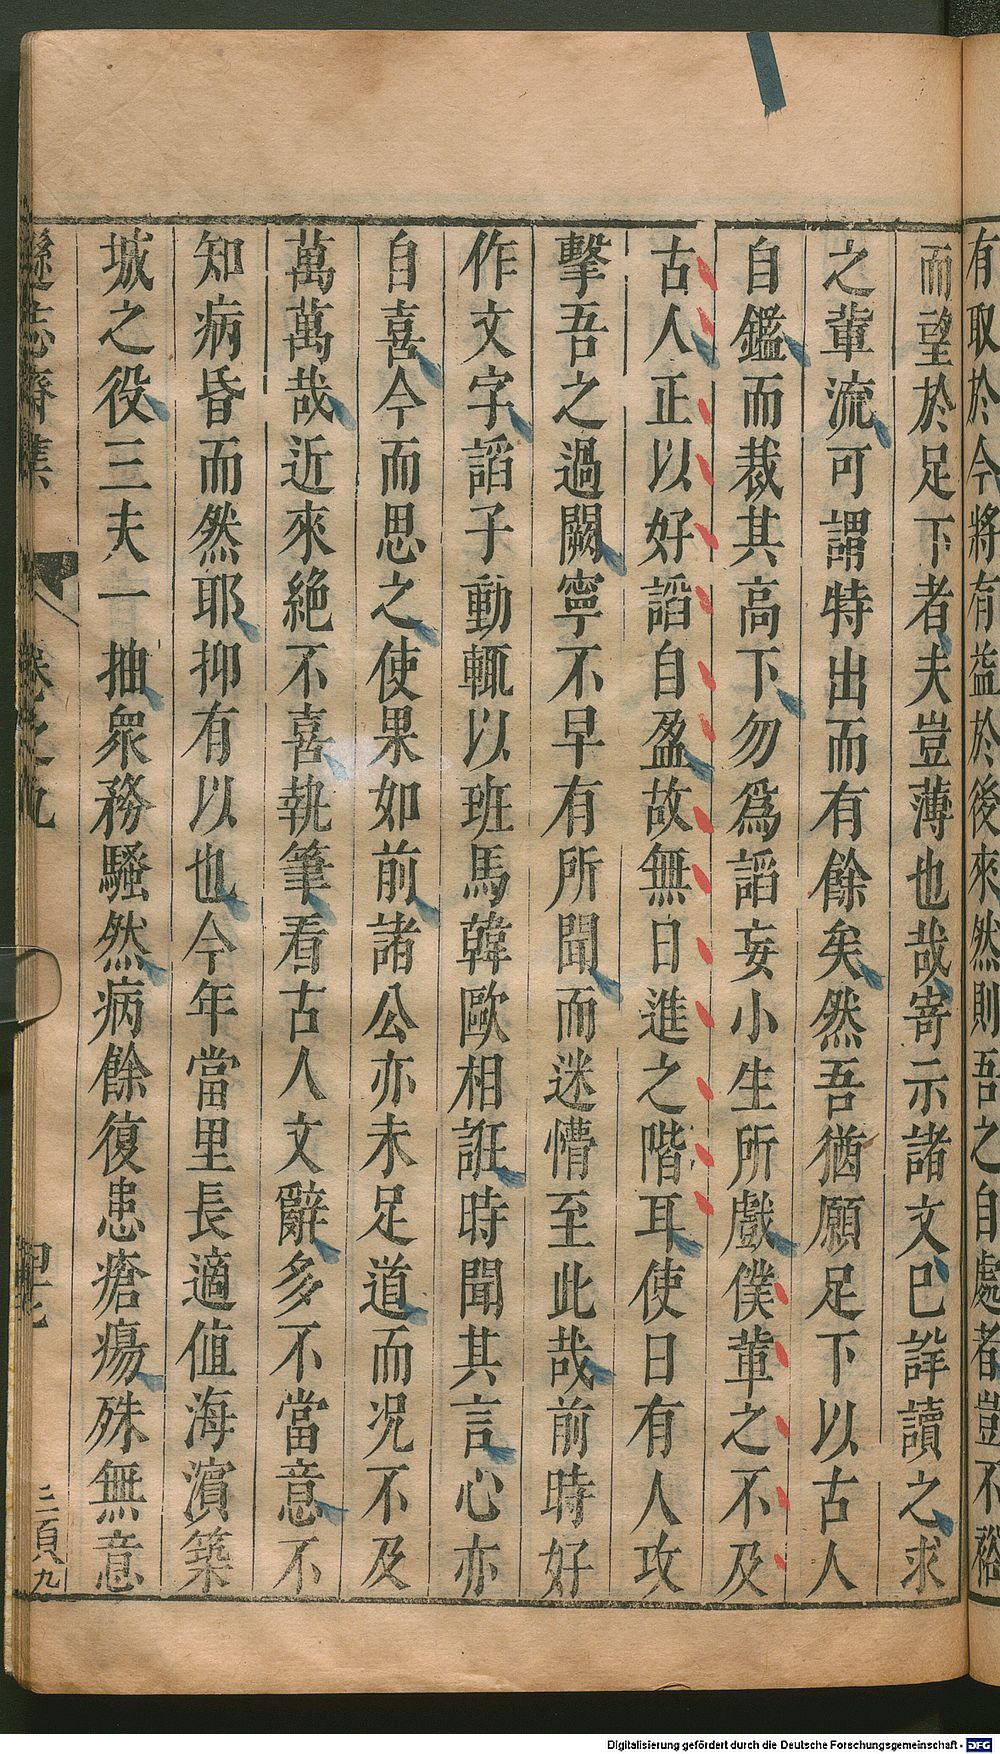 有取於今將有益於後來然則吾之自處者豈不裕
而望於足下者夫豈薄也哉寄示諸文已詳讀之求
之輩流可謂特出而有餘矣然吾猶願足下以古人
自鑑而裁其高下勿爲謟妄小生所戲僕輩之不及
古人正以好謟自盈故無日進之階耳使日有人攻
擊吾之過闕寧不早有所聞而迷懵至此哉前時好
作文字謟子動輒以班馬韓歐相誑時聞其言心亦
自喜今而思之使果如前諸公亦未足道而况不及
萬萬哉近來絶不喜執筆看古人文辭多不當意不
知病昏而然耶抑有以也今年當里長適值海濵築
城之役三夫一抽衆務騷然病餘復患瘡瘍殊無意
遜志齋集
卷之九
四七
三頁九
Digitalisierung gefördert durch die Deutsche Forschungsgemeinschaft - DFG